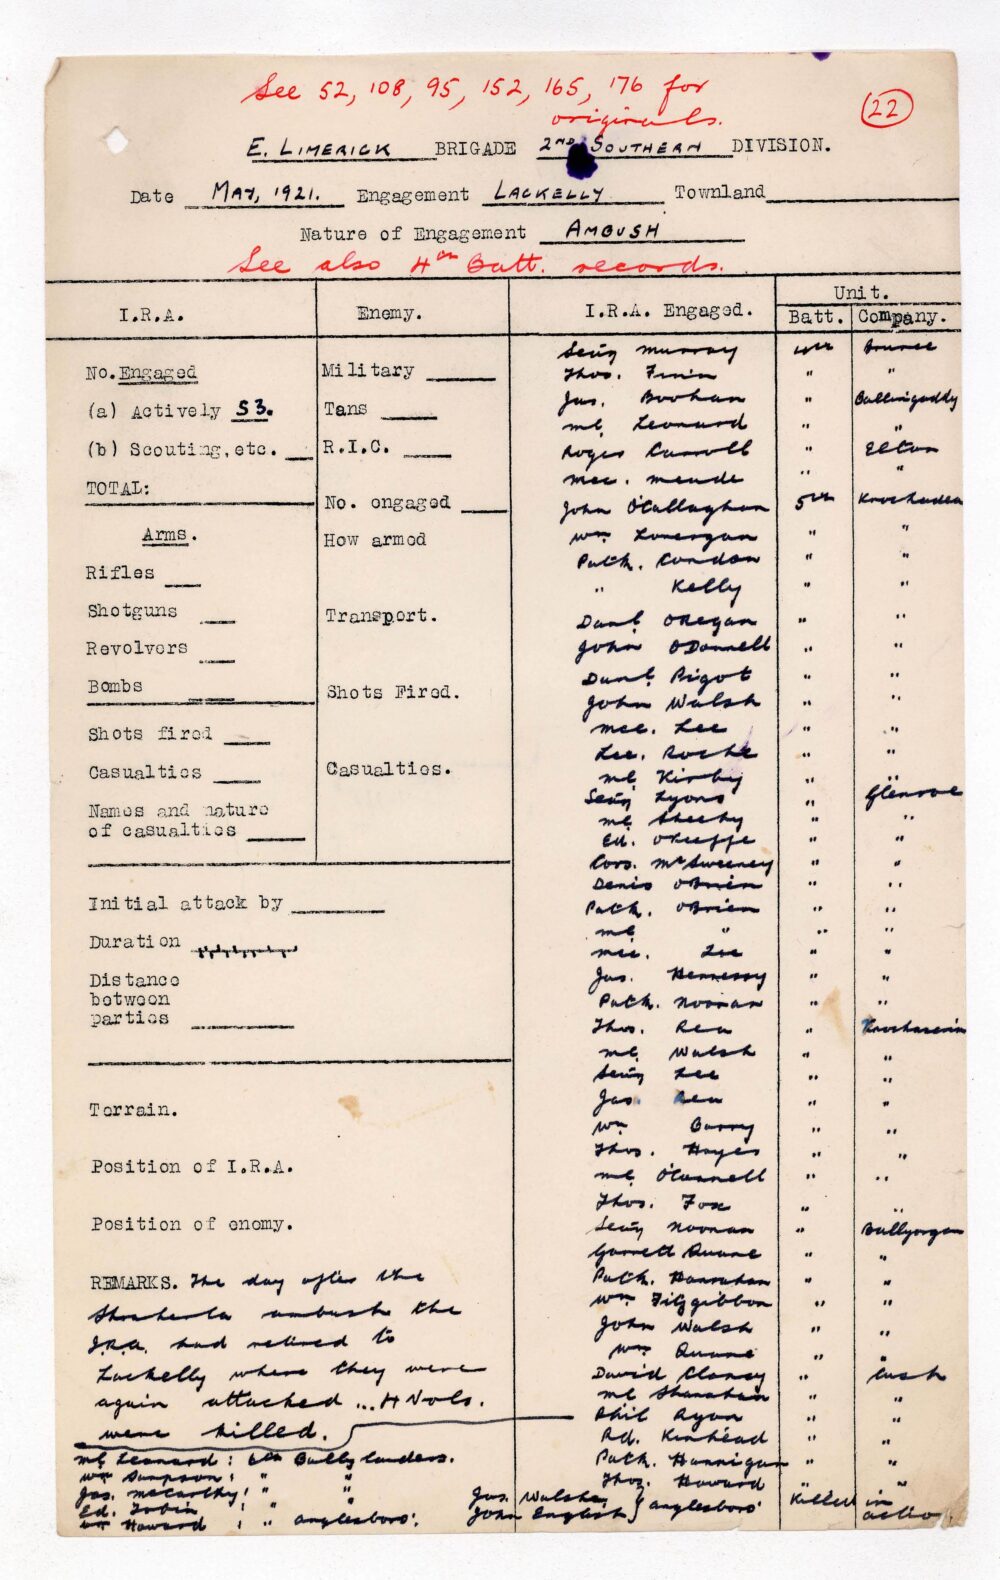 See 52, 108, 95, 152, 165, 176 for
originals.
22
E. LIMERICK BRIGADE 2ND SOUTHERN DIVISION.
Date MAY, 1921. Engagement LACKELLY Townland
Nature of Engagement AMBUSH
See also 4th Batt. records.
I.R.A. Enemy. I.R.A. Engaged. Unit.
Batt. Company.
No. Engaged
(a) Actively 53.
(b) Scouting, etc.
TOTAL:
Arms.
Rifles
Shotguns
Revolvers
Bombs
Shots fired
Casualties
Names and nature
of casualties
Military
Tans
R.I.C.
No. engaged
How armed
Transport.
Shots Fired.
Casualties.
Initial attack by
Duration
Distance
between
parties
Terrain.
Position of I.R.A.
Position of enemy.
REMARKS. The day after the
Shraherla ambush the
I.R.A. had retired to
Lackelly where they were
again attacked ... 4 Vols.
were killed.
Seán Murray 4th Bruree
Thos. Finn " "
Jas. Boohan " Ballingaddy
Ml. Leonard " "
Roger Carroll " Elton
Mce. Meade " "
John O'Callaghan 5th Knockadea
Wm. Lonergan " "
Patk. Condon " "
" Kelly " "
Danl. O'Regan " "
John O'Donnell " "
Danl. Pigot " "
John Walsh " "
Mce. Lee " "
Lce. Roche " "
Ml. Kirby " "
Seán Lyons " Glenroe
Ml. Sheehy " "
Ed. O'Keeffe " "
Cors. McSweeney " "
Denis O'Brien " "
Patk. O'Brien " "
Ml. " " "
Mce. Lee " "
Jas. Hennessy " "
Patk. Noonan " "
Thos. Rea "
Ml. Walsh " "
Seán Lee " "
Jas. Rea " "
Wm Barry " "
Thos. Hayes " "
Ml. O'Connell " "
Thos. Fox " "
Seán Noonan " Ballyorgan
Garrett Ruane " "
Patk. Hanrahan " "
Wm Fitzgibbon " "
John Walsh " "
Wm Ruane " "
David Clancy " Cush
Ml. Shanahan " "
Phil Ryan " "
Rd. Kinhead " "
Patk. Hannigan " "
Thos. Howard " "
Ml. Leonard : 6th Ballylanders.
Wm Simpson : " "
Jas. McCarthy : " "
Ed. Tobin : " "
Wm Howard : " Anglesboro'.
Jas. Walshe }
John English } Anglesboro' Killed in
action